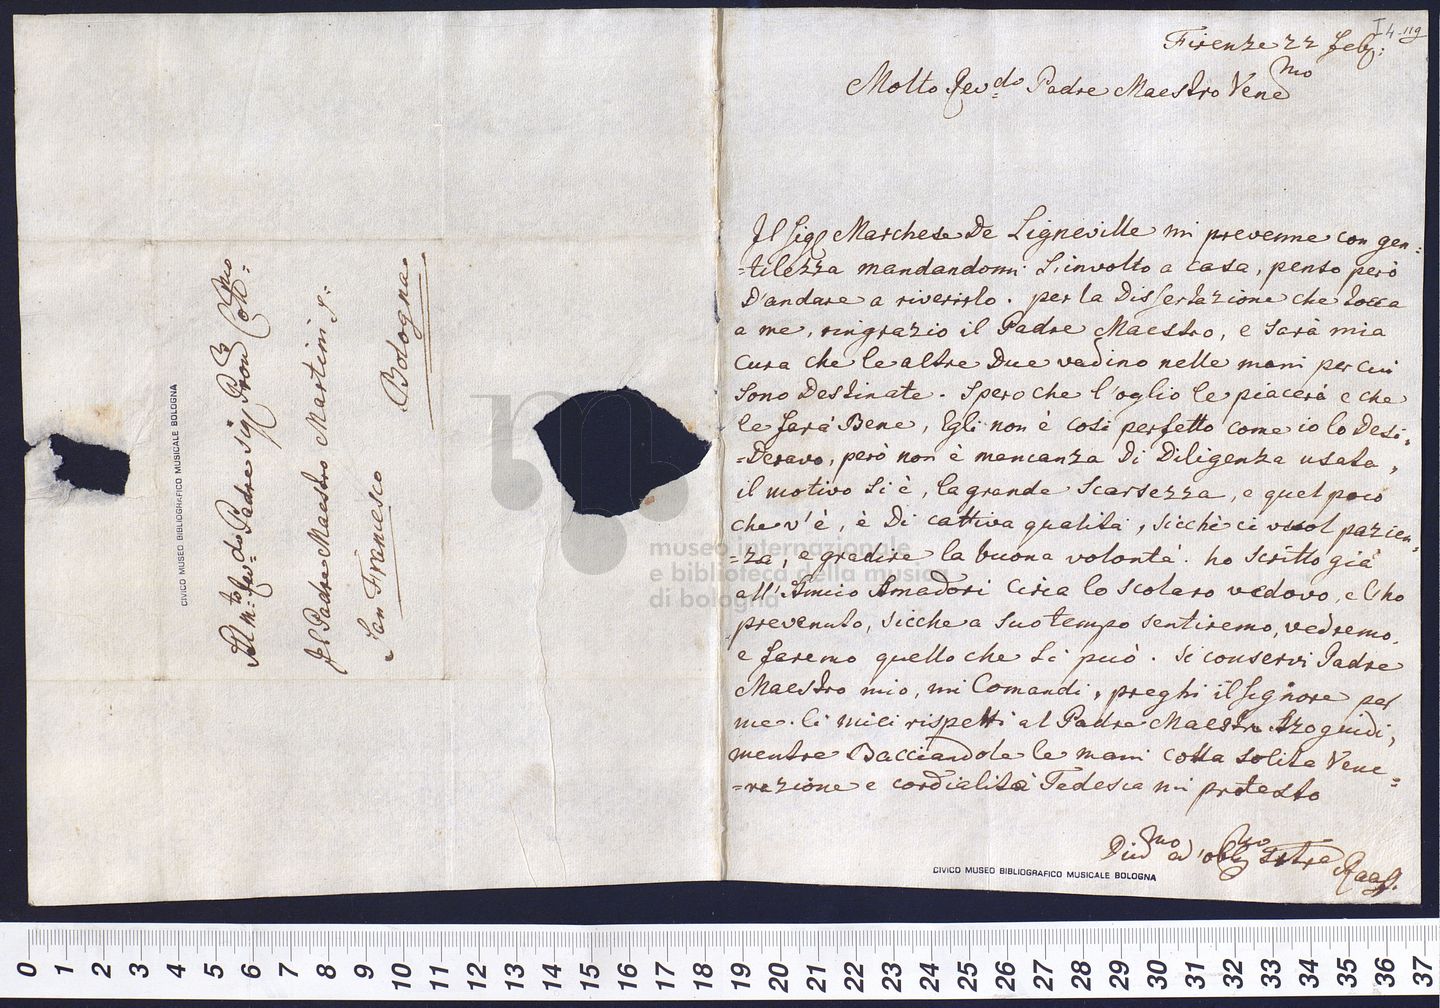 Al M:to Rev:do Padre Sig: Pron Coll:mo
Il Padre Maestro Martini
San Francesco
Bologna
CIVICO MUSEO BIBLIOGRAFICO MUSICALE BOLOGNA
I 4-119
Firenze 22 feb:
Molto Rev:do Padre Maestro Vene mo
Il Sig: Marchese De Ligneville mi prevenne con gen=
=tilezza mandandomi l'involto a casa, penso però
D'andare a riverirlo. per la Dissertazione che tocca
a me, ringrazio il Padre Maestro, e sarà mia
cura che le altre Due vadino nelle mani per cui
sono Destinate. Spero che l'oglio le piacerà e che
le farà Bene, Egli non è così perfetto come io lo Desi=
=Deravo, però non è mancanza Di Diligenza usata,
il motivo si è, la grande scarsezza, e quel poco
che v'è, è Di cattiva qualità, sicchè ci vuol pazien=
=za, e gradire la buona volontà. ho scritto già
all'Amico Amadori circa lo scolaro vedovo, e l'ho
prevenuto, sicche a suo tempo sentiremo, vedremo,
e faremo quello che si può. Si conservi Padre
Maestro mio, mi Comandi, preghi il Signore per
me. li miei rispetti al Padre Maestro Azoguidi,
mentre Bacciandole le mani colla solita Vene=
=razione e cordialità Tedesca mi protesto
Div:mo ed'obl:mo
Raaff.
CIVICO MUSEO BIBLIOGRAFICO MUSICALE BOLOGNA
museo internazionale
e biblioteca della musica
di bologna
0 1 2 3 4 5 6 7 8 9 10 11 12 13 14 15 16 17 18 19 20 21 22 23 24 25 26 27 28 29 30 31 32 33 34 35 36 37